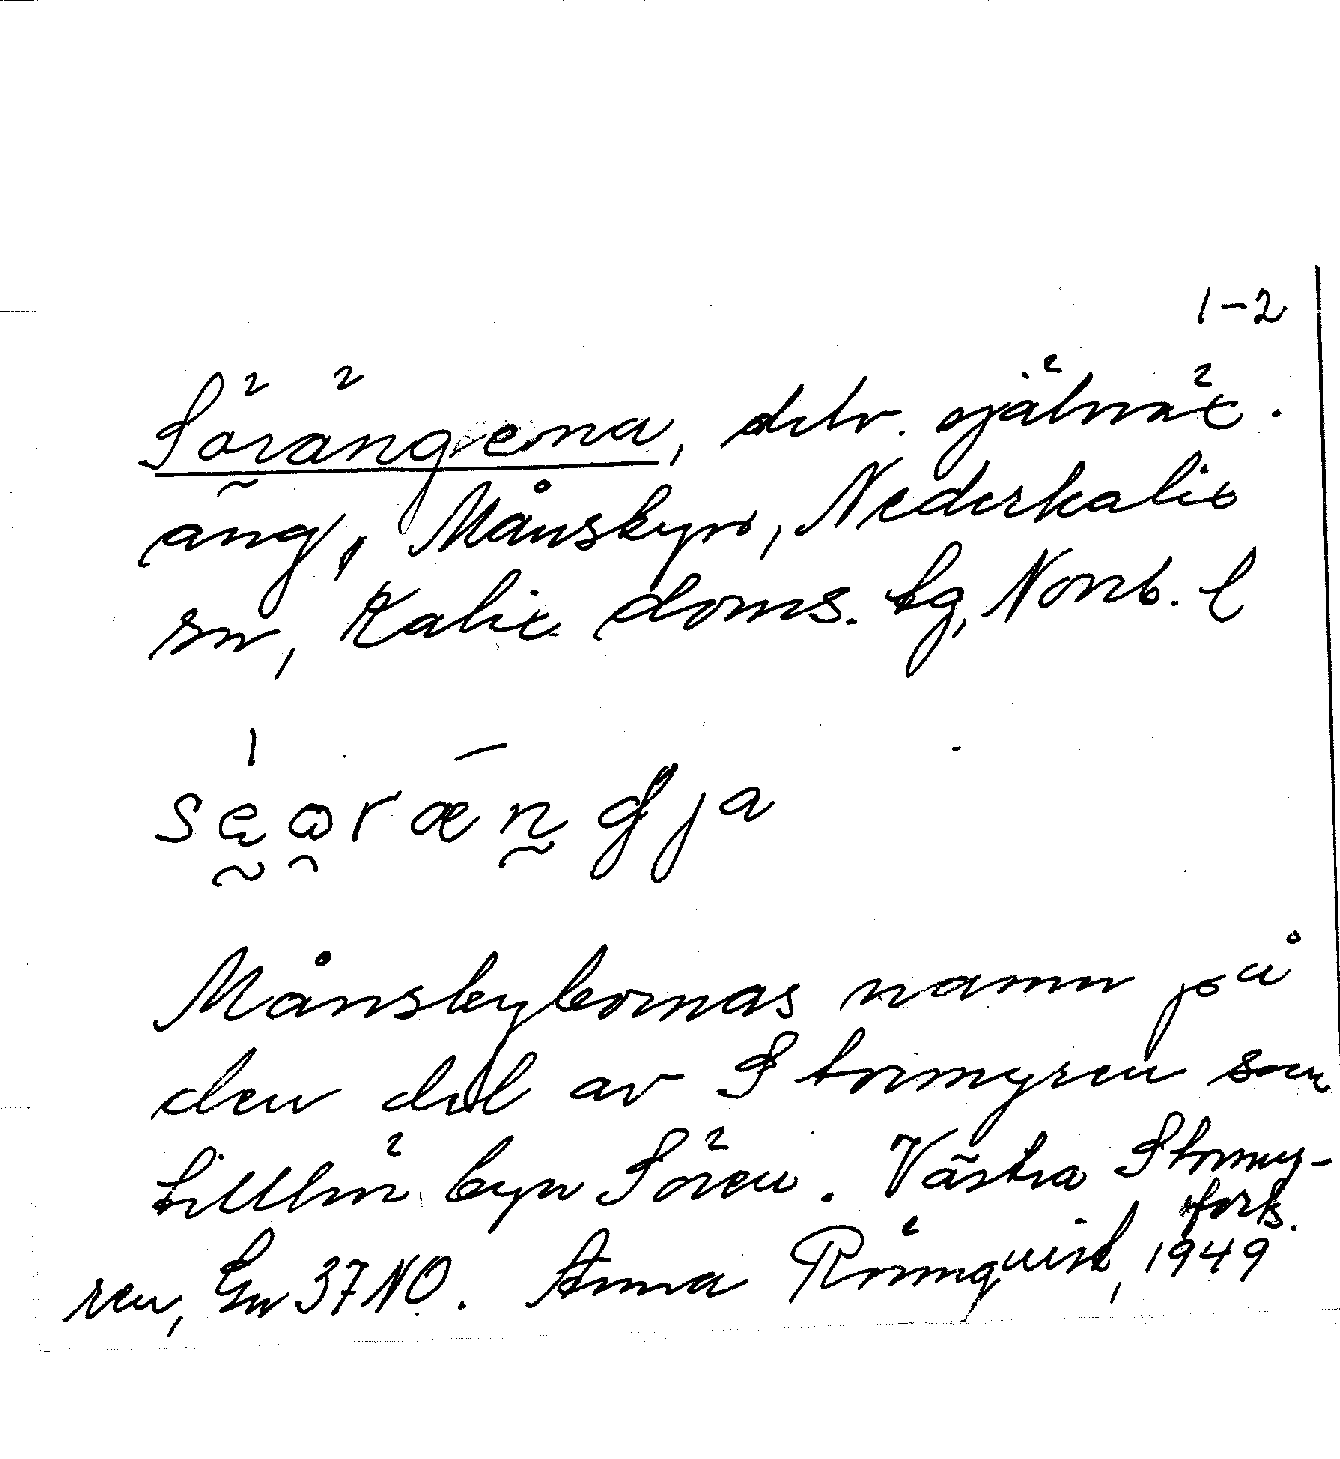 1-2
Sörängerna, delv. självväx.
äng, Månsbyn, Nederkalix
sn, Kalix doms. tg, Norrb. l
seɷrængja
Månsbybornas namn på
den del av Stormyren som
tillhör byn Sören. Västra Stormy-
ren, Gw 37 NO. Anna Rönnquist, 1949
forts.